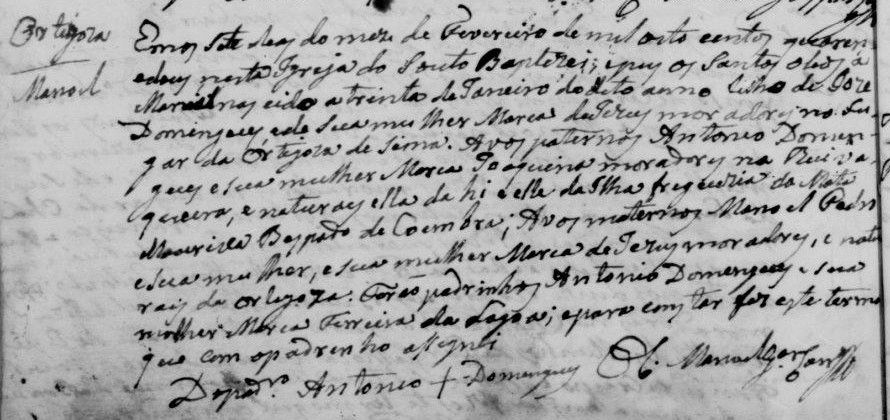 Ortigoza
Manoel
Em os sete dias do mez de Fevereiro de mil oito centos quaren
e dous nesta Igreja do Souto Baptizei, e puz os Santos oleos a
Manoel nascido a trinta de Janeiro do dito anno filho de Joze
Domingues e de sua mulher Maria de Jezus moradores no Lu
gar da Ortigoza de Sima. Avos paternos Antonio Domin
gues e sua mulher Maria Joaquina moradores na Ruiva
queira, e naturaes ella da hi e elle da Ilha freguezia da Mata
Mourisca Bispado de Coimbra; Avos maternos Manoel Pedro
e sua mulher, e sua mulher Maria de Jezus moradores, e natu
raes da Ortigoza. Forão padrinhos Antonio Domingues e sua
molher Maria Ferreira da Lagoa; e para constar fiz este termo
que com o padrinho assignei
Do padr.º Antonio + Domingues O C. Manoel